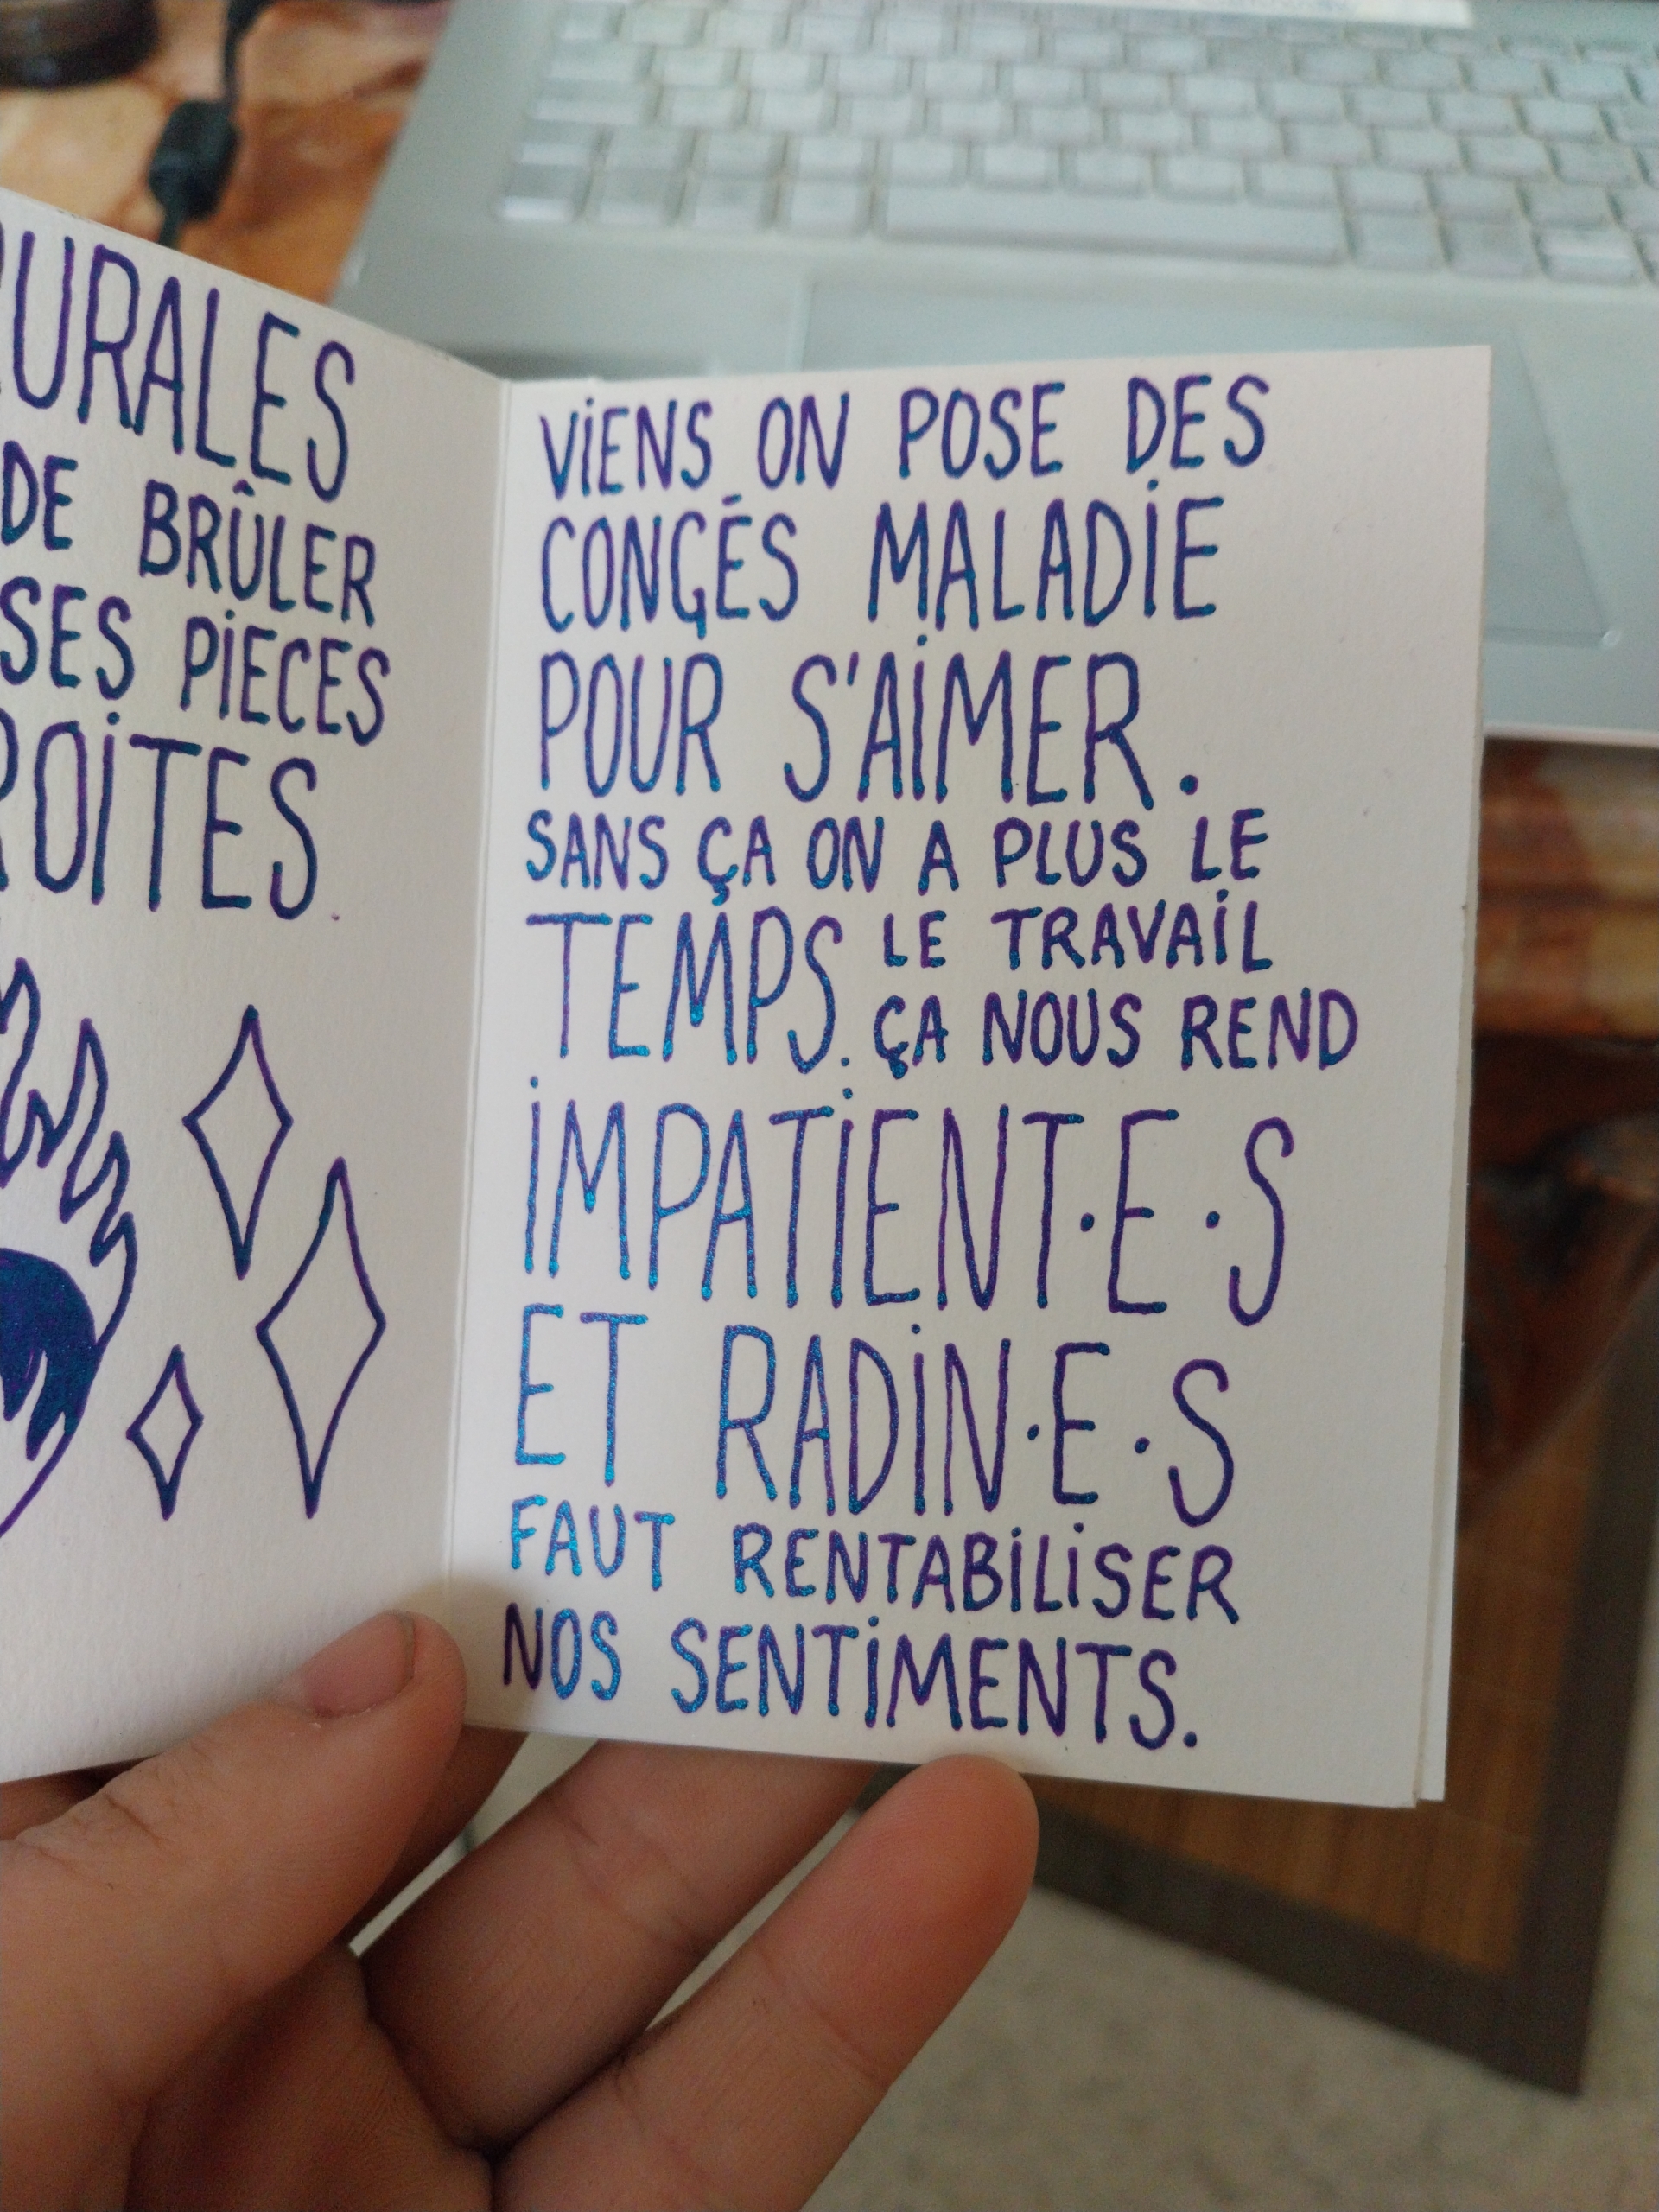 URALES
DE BRÛLER
SES PIECES
ROITES.
VIENS ON POSE DES
CONGÉS MALADIE
POUR S'AIMER.
SANS ÇA ON A PLUS LE
TEMPS. LE TRAVAIL
ÇA NOUS REND
IMPATIENT·E·S
ET RADIN·E·S
FAUT RENTABILISER
NOS SENTIMENTS.